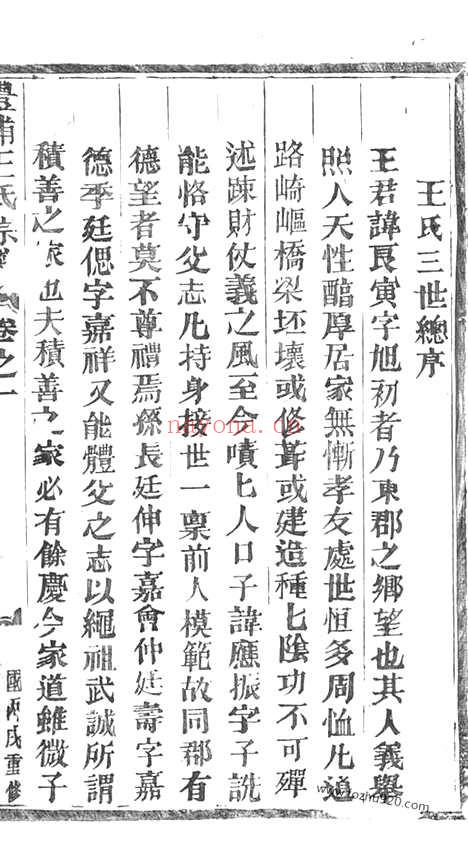 王氏三世總序
王君諱艮寅字旭初者乃東郡之鄉望也其人義舉
照人天性醕厚居家無慚孝友處世恒多周恤凡道
路崎嶇橋梁坯壞或修葺或建造種匕陰功不可殫
述疎財仗義之風至今嘖匕人口子諱應振字子説
能恪守父志凡持身接世一稟前人模範故同郡有
德望者莫不尊禮焉孫長廷伸字嘉會仲廷壽字嘉
德季廷偲字嘉祥又能體父之志以繩祖武誠所謂
積善之家也夫積善之家必有餘慶今家道雖微子
豊浦王氏宗譜 卷之一
國丙戌重修
nayona.cn
www.tozhu920.com